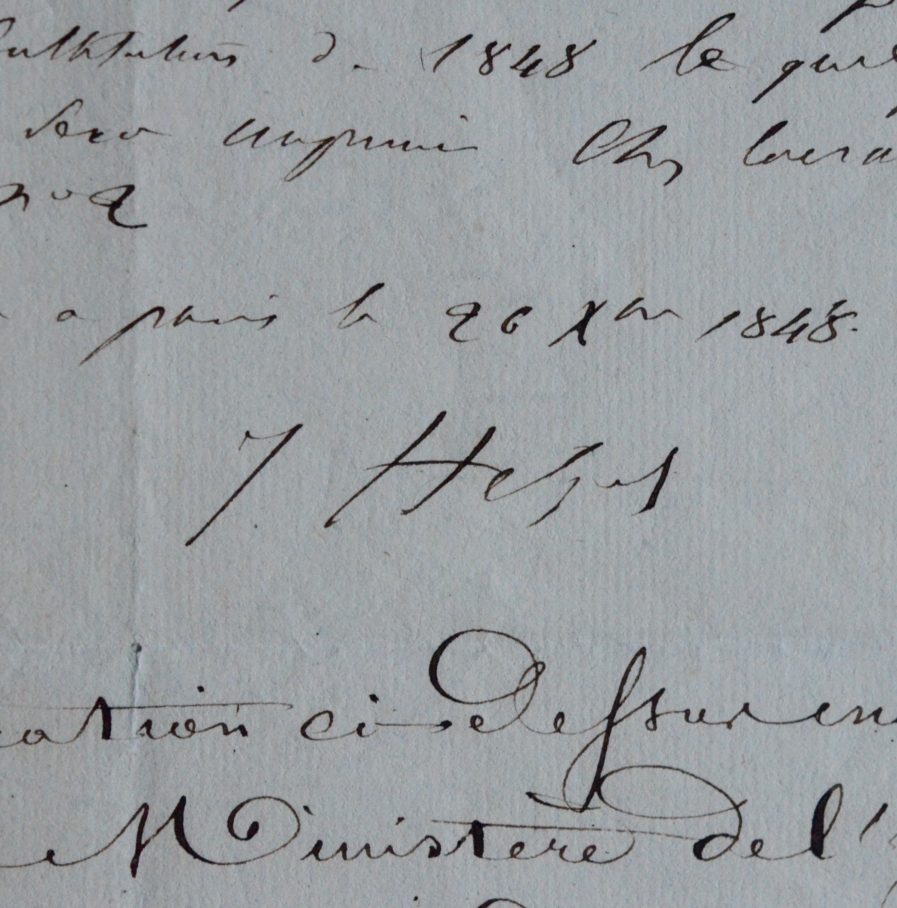 de 1848 le quel
sera imprimé chez
a paris le 26 Xbre 1848.
J Hetzel
ation ci-dessus en
Ministère de l'